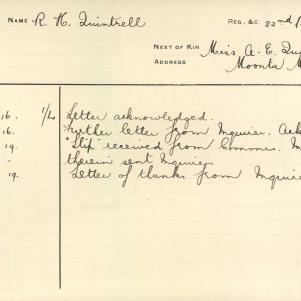 NAME R. K. Quintrell REG. &C. 32nd
NEXT OF KIN Miss A. E. Qu
ADDRESS Moonta M
16. 1/2 Letter acknowledged.
16. Further letter from Inquirer. Ack
19. "Slip" received from Commrs. In
" therein sent Inquirer
19. Letter of thanks from Inquire